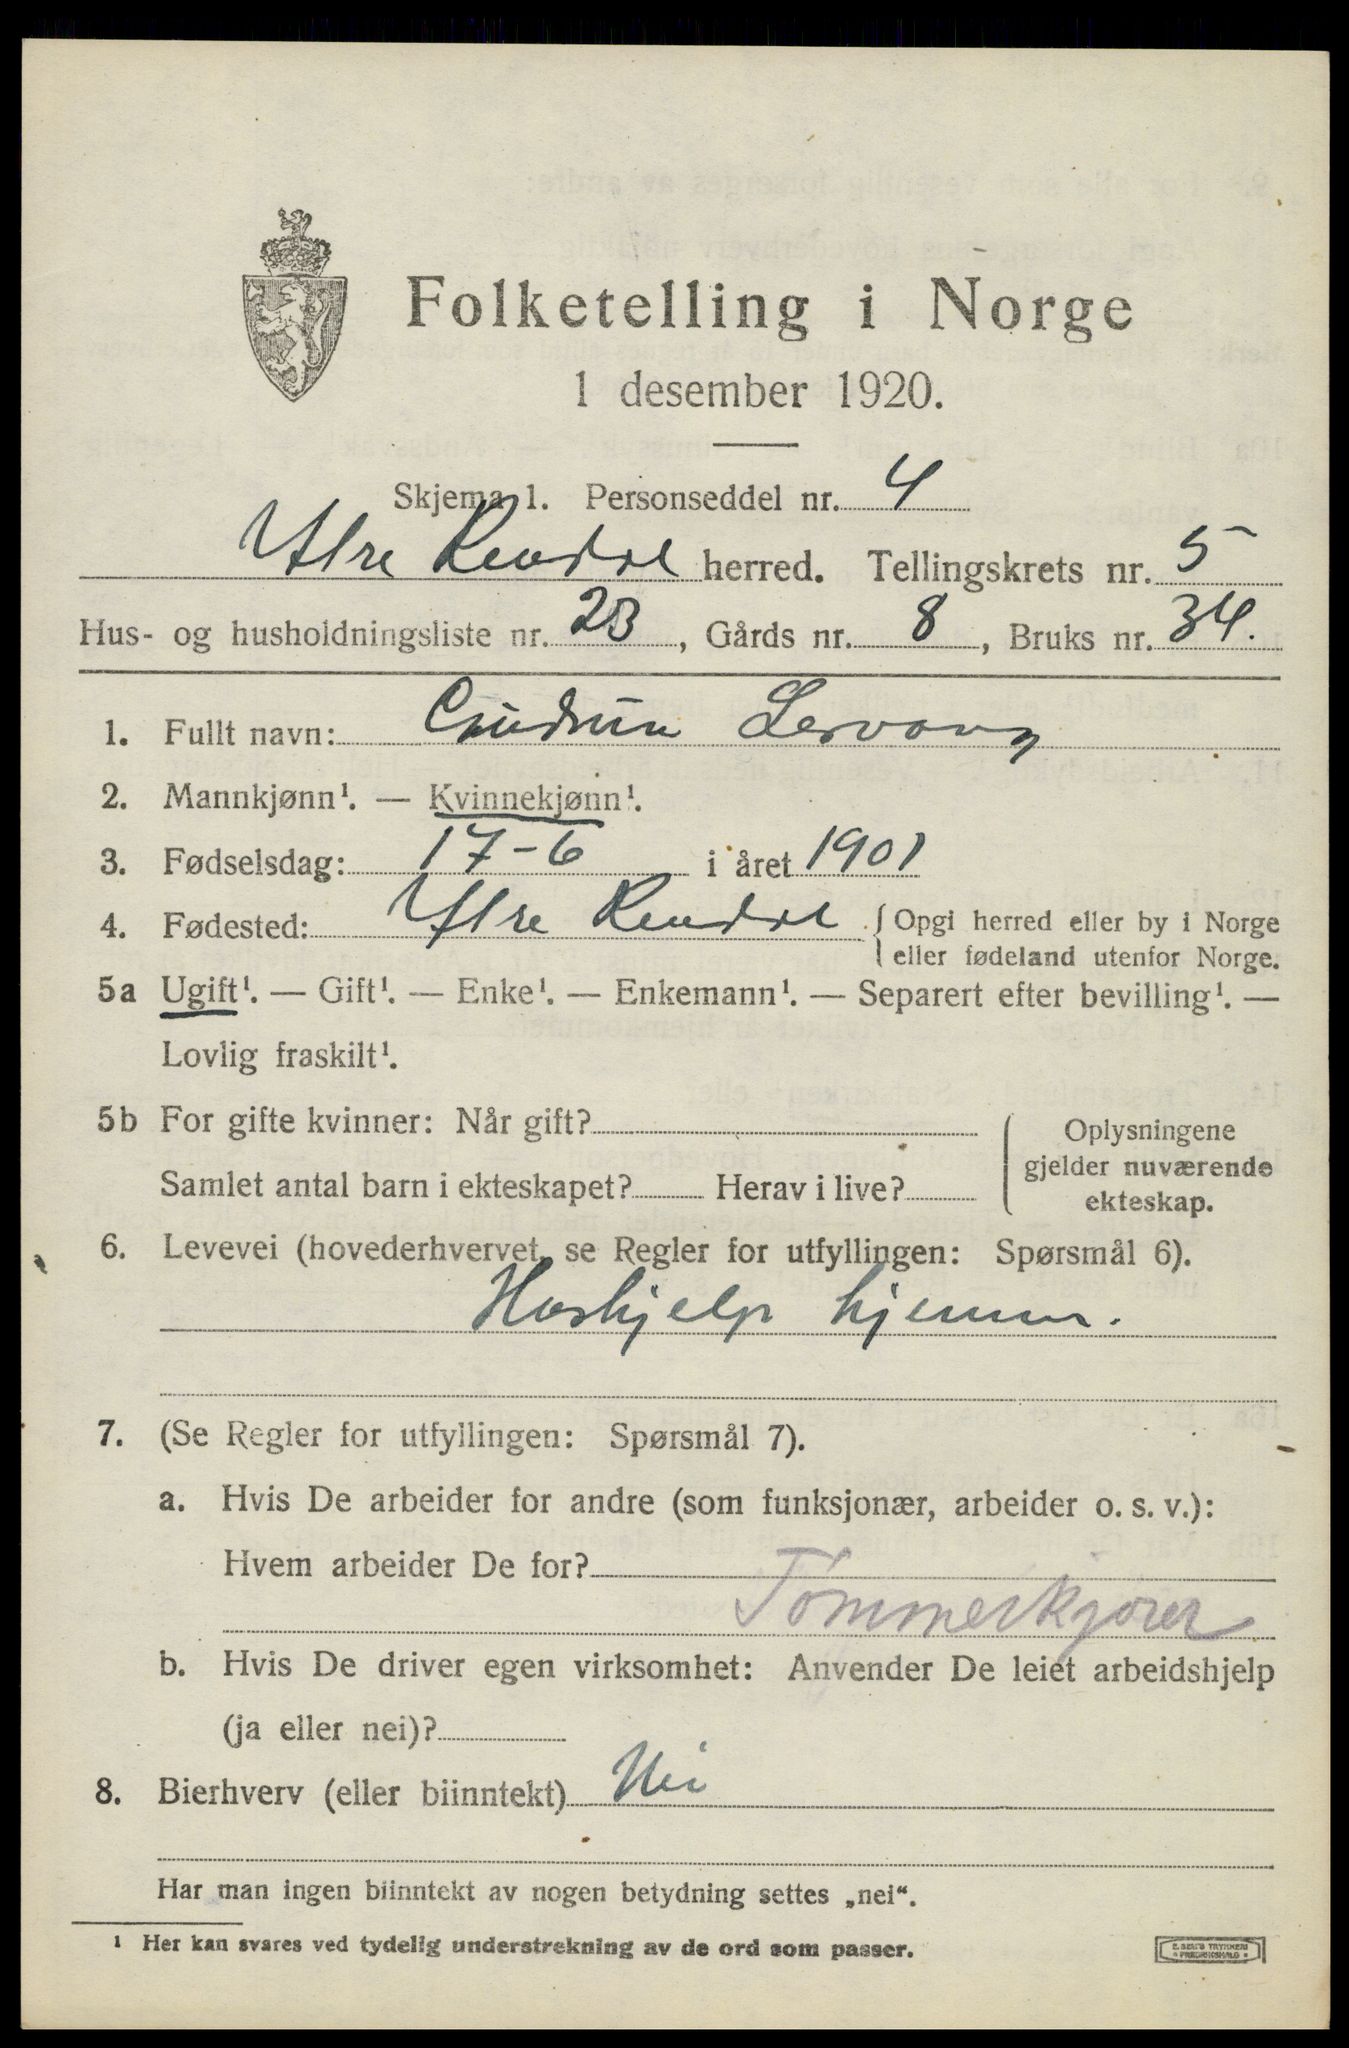 Folketelling i Norge
1 desember 1920.
Skjema 1. Personseddel nr. 4
Ytre Rendal herred. Tellingskrets nr. 5
Hus- og husholdningsliste nr. 23, Gårds nr. 8, Bruks nr. 34.
1. Fullt navn: Gudrun Lervang
2. Mannkjønn¹. — Kvinnekjønn¹.
3. Fødselsdag: 17-6 i året 1901
4. Fødested: Ytre Rendal { Opgi herred eller by i Norge
eller fødeland utenfor Norge.
5a Ugift¹. — Gift¹. — Enke¹. — Enkemann¹. — Separert efter bevilling¹. —
Lovlig fraskilt¹.
5b For gifte kvinner: Når gift?
Samlet antal barn i ekteskapet? Herav i live?
Oplysningene
gjelder nuværende
ekteskap.
6. Levevei (hovederhvervet, se Regler for utfyllingen: Spørsmål 6).
Hushjelp hjemme.
7. (Se Regler for utfyllingen: Spørsmål 7).
a. Hvis De arbeider for andre (som funksjonær, arbeider o. s. v.):
Hvem arbeider De for?
Tømmerkjører
b. Hvis De driver egen virksomhet: Anvender De leiet arbeidshjelp
(ja eller nei)?
8. Bierhverv (eller biinntekt) Nei
Har man ingen biinntekt av nogen betydning settes „nei“.
¹ Her kan svares ved tydelig understrekning av de ord som passer.
E. SEM'S TRYKKERI
FREDRIKSHALD